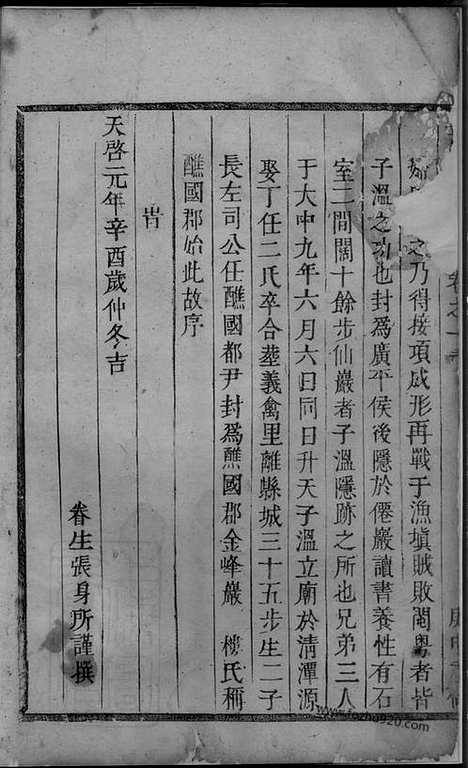 之乃得接項成形再戰于漁塡賊敗閩粤者皆
子溫之功也封爲廣平侯後隱於僊巖讀書養性有石
室二間闊十餘步仙巖者子溫隱跡之所也兄弟三人
于大中九年六月六日同日升天子溫立廟於清潭源
娶丁任二氏卒合塟義禽里離縣城三十五步生二子
長左司公任醮國都尹封爲醮國郡金峰巖 樓氏稱
醮國郡始此故序
旹
天啓元年辛酉歲仲冬吉
眷生張身所謹撰
www.fozhu920.com